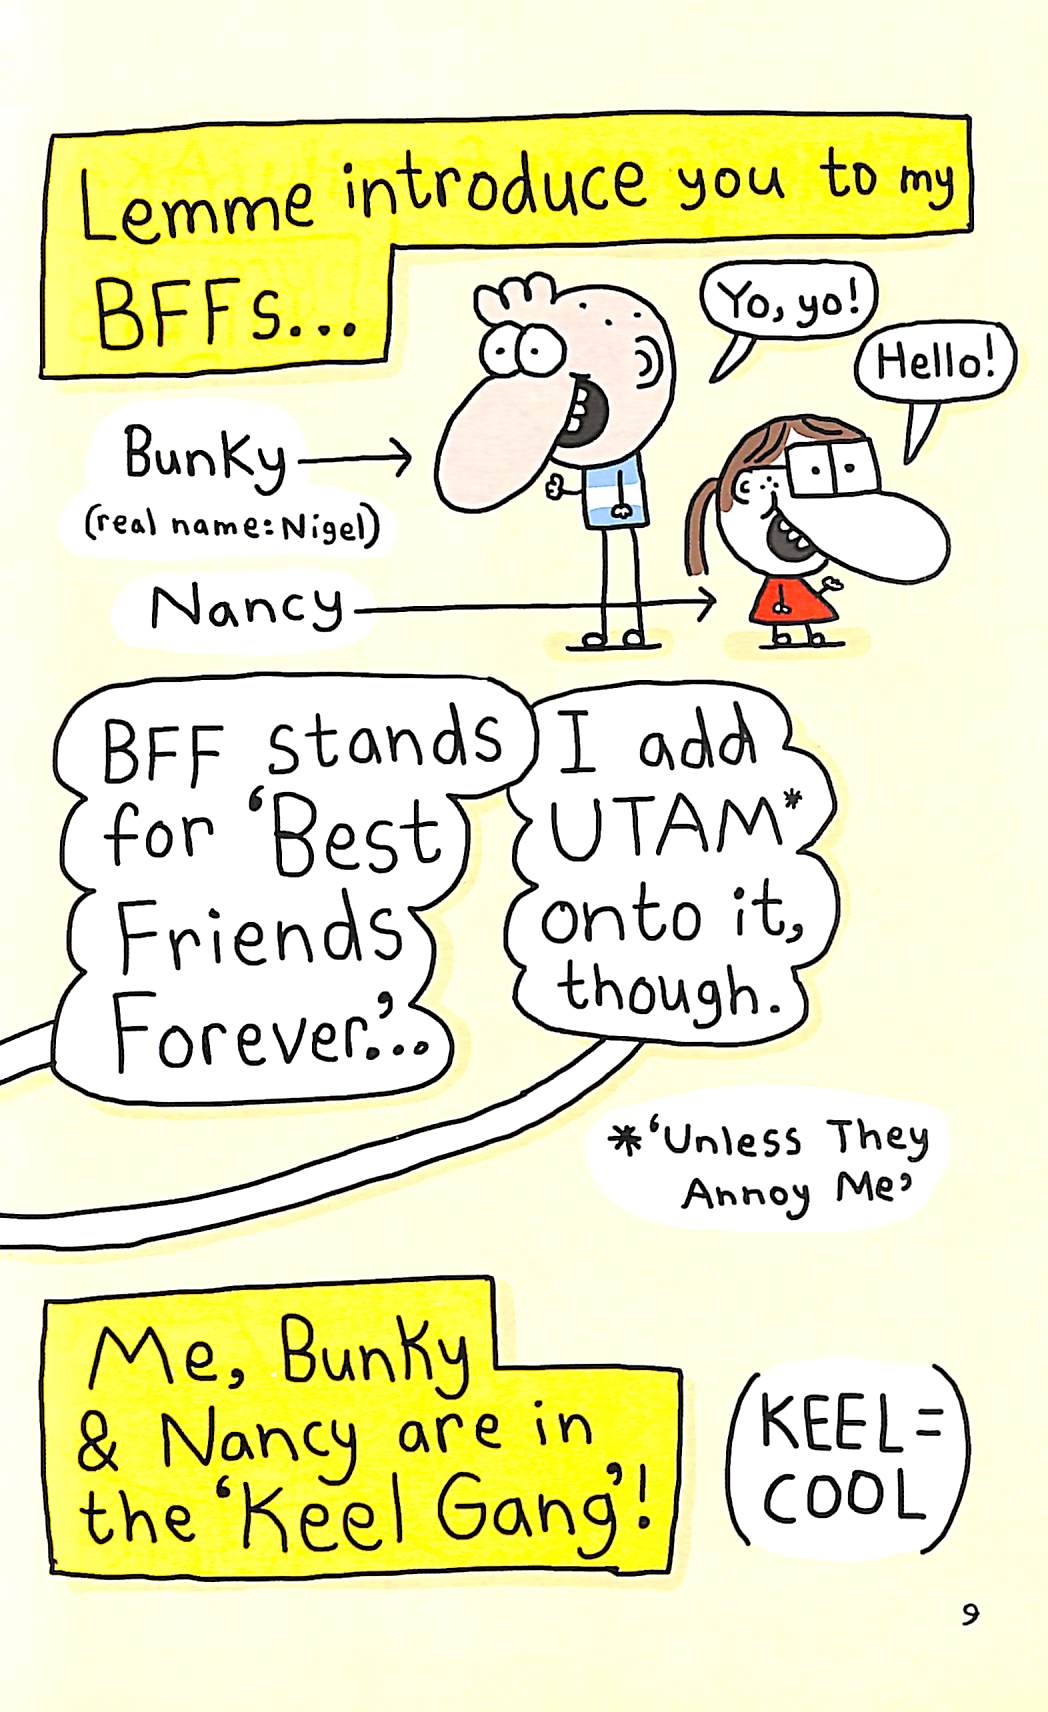 Lemme introduce you to my
BFFs...
Yo, yo!
Hello!
Bunky
(real name: Nigel)
Nancy
BFF stands
for ‘Best
Friends
Forever.’..
I add
UTAM*
onto it,
though.
*‘Unless They
Annoy Me’
Me, Bunky
& Nancy are in
the ‘Keel Gang’!
(KEEL=
COOL)
9